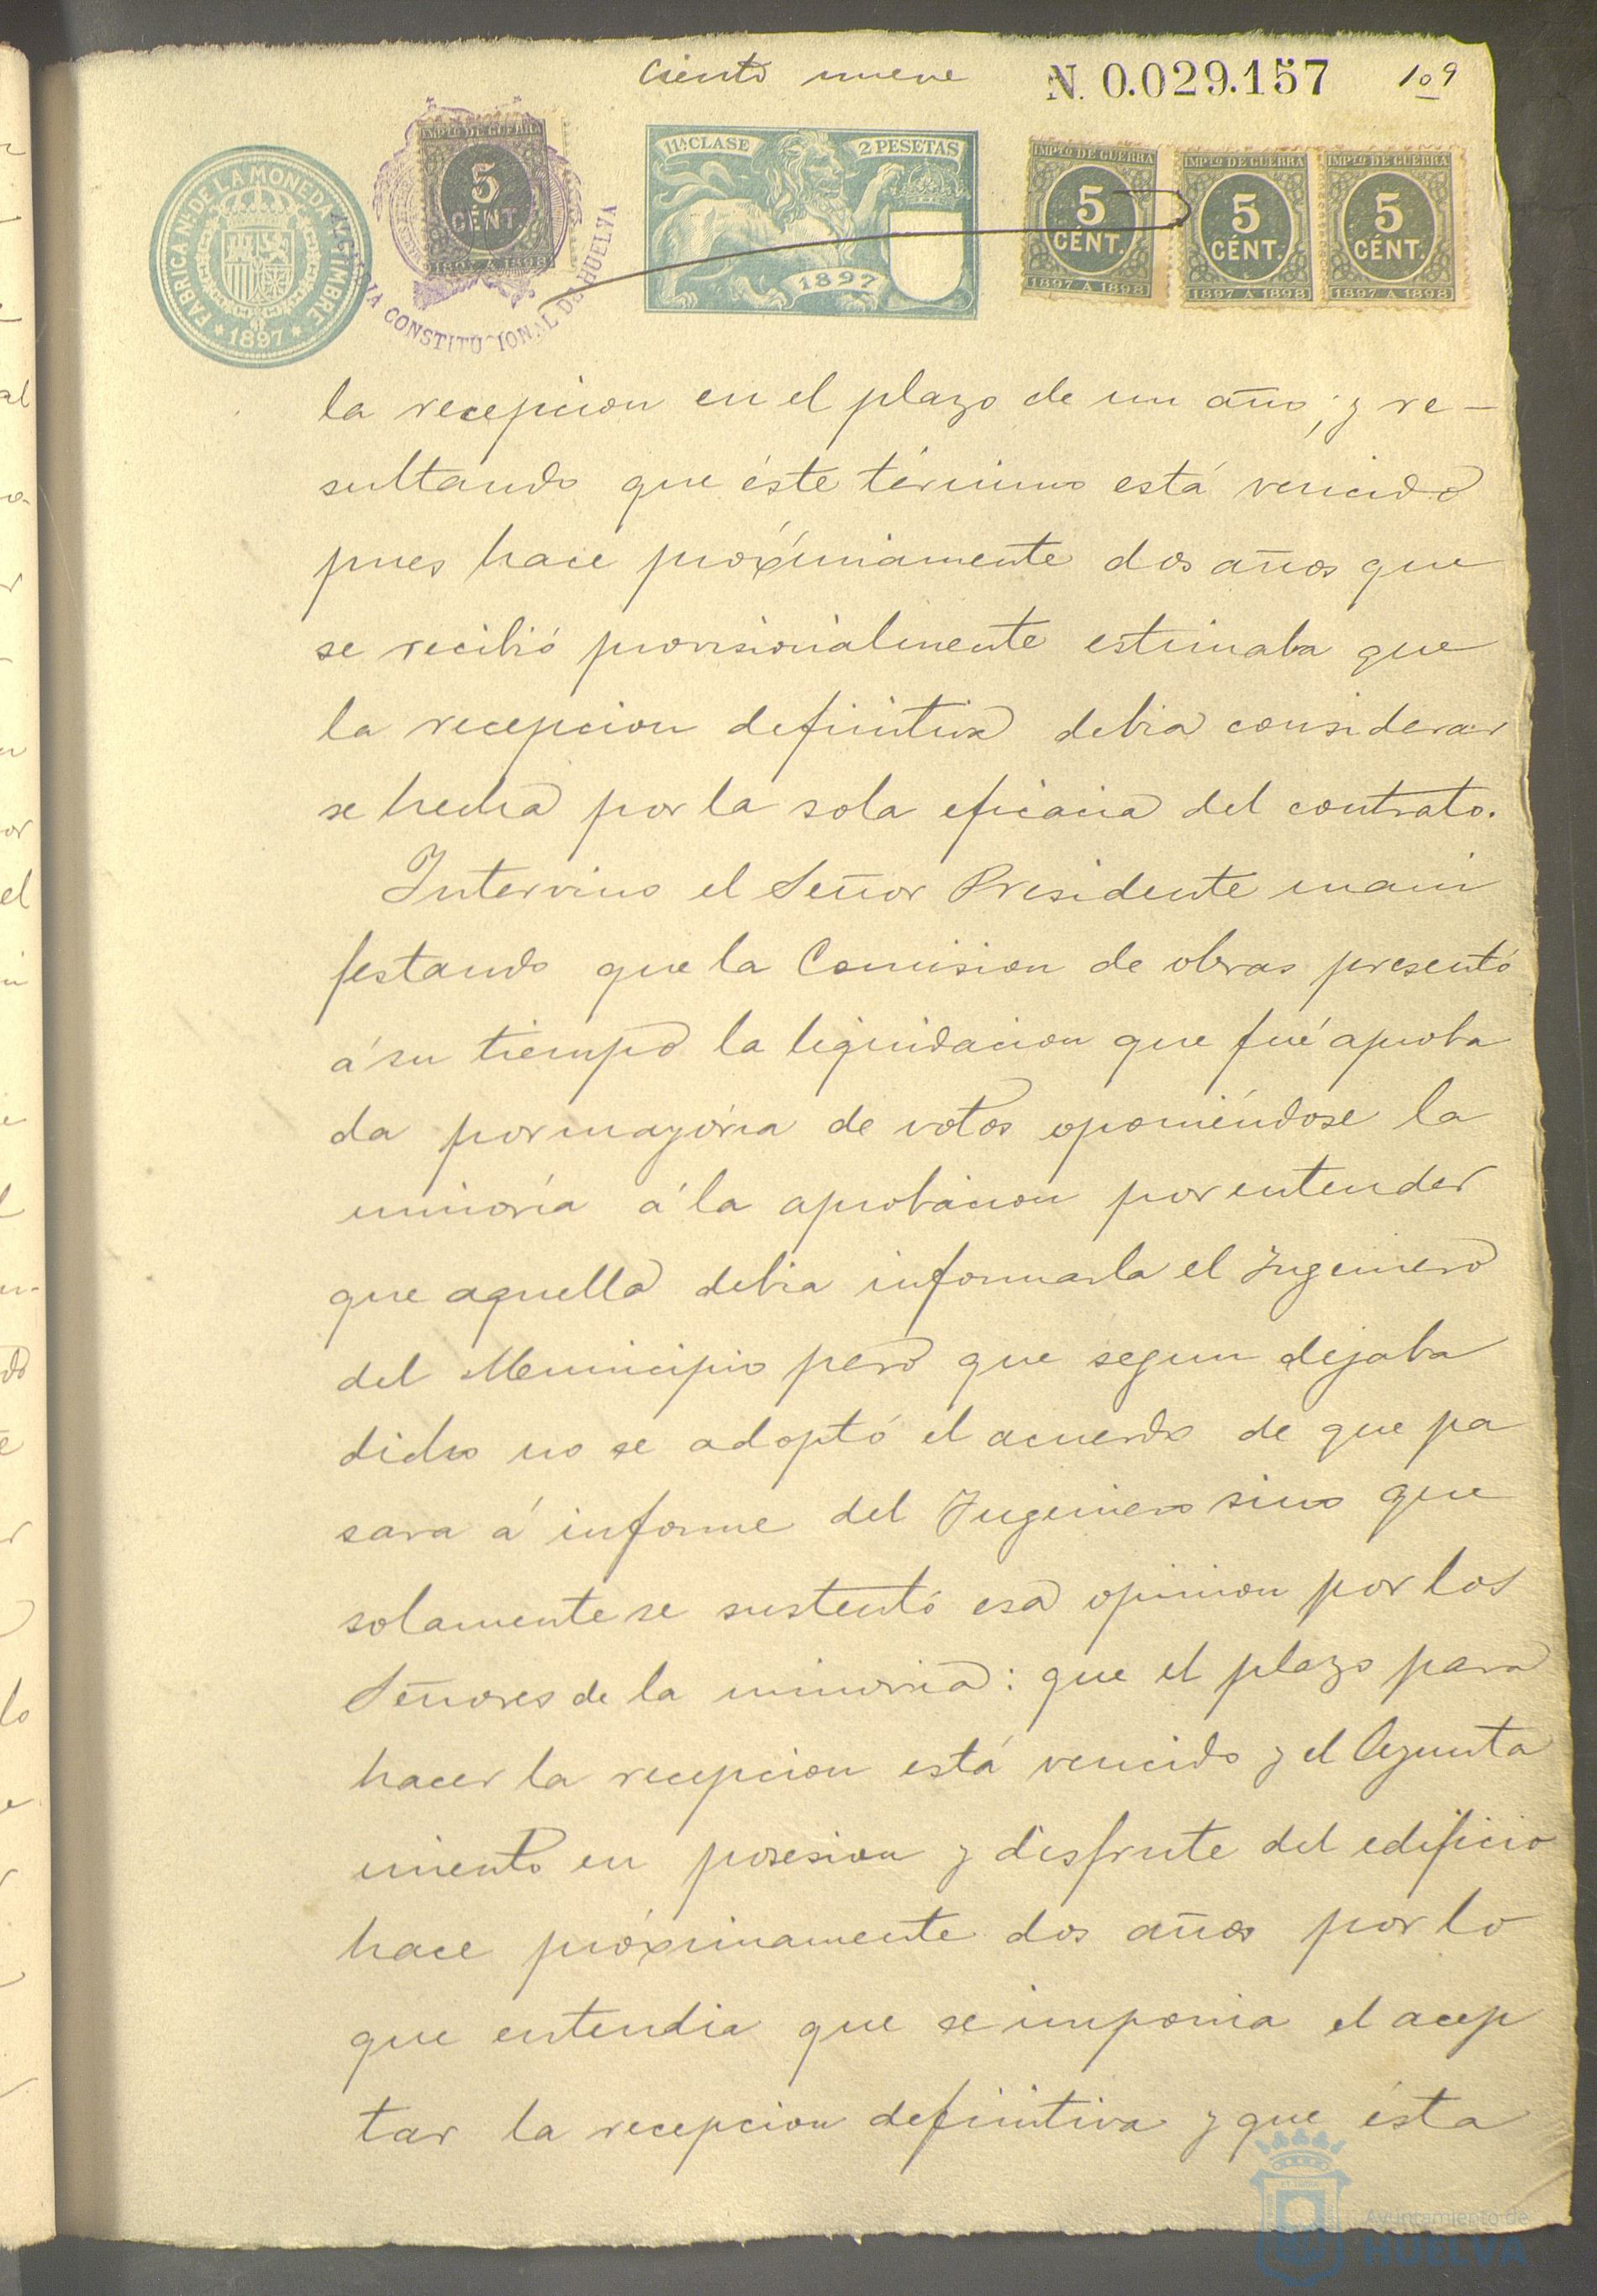 ciento nueve N. 0.029.157 109
FABRICA NL. DE LA MONEDA Y TIMBRE
* 1897 *
IMPTO DE GUERRA
5
CÉNT.
1897 A 1898
CONSTITUCIONAL DE HUELVA
11ª CLASE 2 PESETAS
1897
IMPTO DE GUERRA
5
CÉNT.
1897 A 1898
IMPTO DE GUERRA
5
CÉNT.
1897 A 1898
IMPTO DE GUERRA
5
CÉNT.
1897 A 1898
la recepcion en el plazo de un año; y re-
sultando que éste término está vencido
pues hace próximamente dos años que
se recibió provisionalmente estimaba que
la recepcion definitiva debia considerar
se hecha por la sola eficacia del contrato.
Intervino el Señor Presidente mani
festando que la Comision de obras presentó
á su tiempo la liquidacion que fué aproba
da por mayória de votos oponiéndose la
minoría á la aprobacion por entender
que aquella debia informarla el Ingeniero
del Municipio pero que segun dejaba
dicho no se adoptó el acuerdo de que pa
sara á informe del Ingeniero sino que
solamente se sustentó esa opinion por los
Señores de la minoria: que el plazo para
hacer la recepcion está vencido y el Ayunta
miento en posesion y disfrute del edificio
hace próximamente dos años por lo
que entendia que se imponia el acep
tar la recepcion definitiva y que ésta
Ayuntamiento de
HUELVA